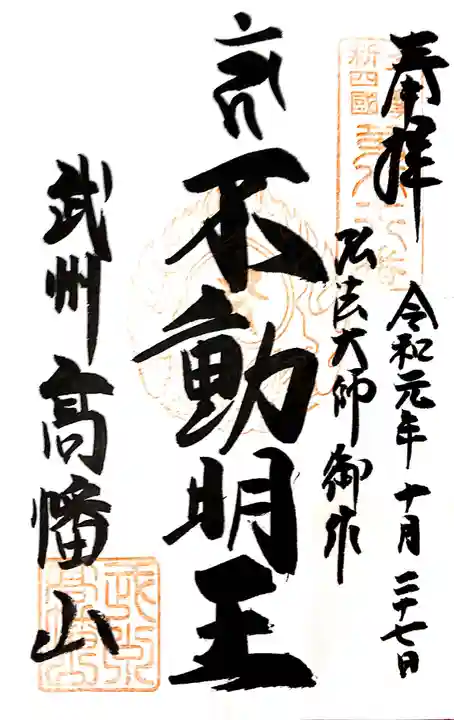 奉拝
令和元年十月二十七日
弘法大師御作
不動明王
武州高幡山
新四國